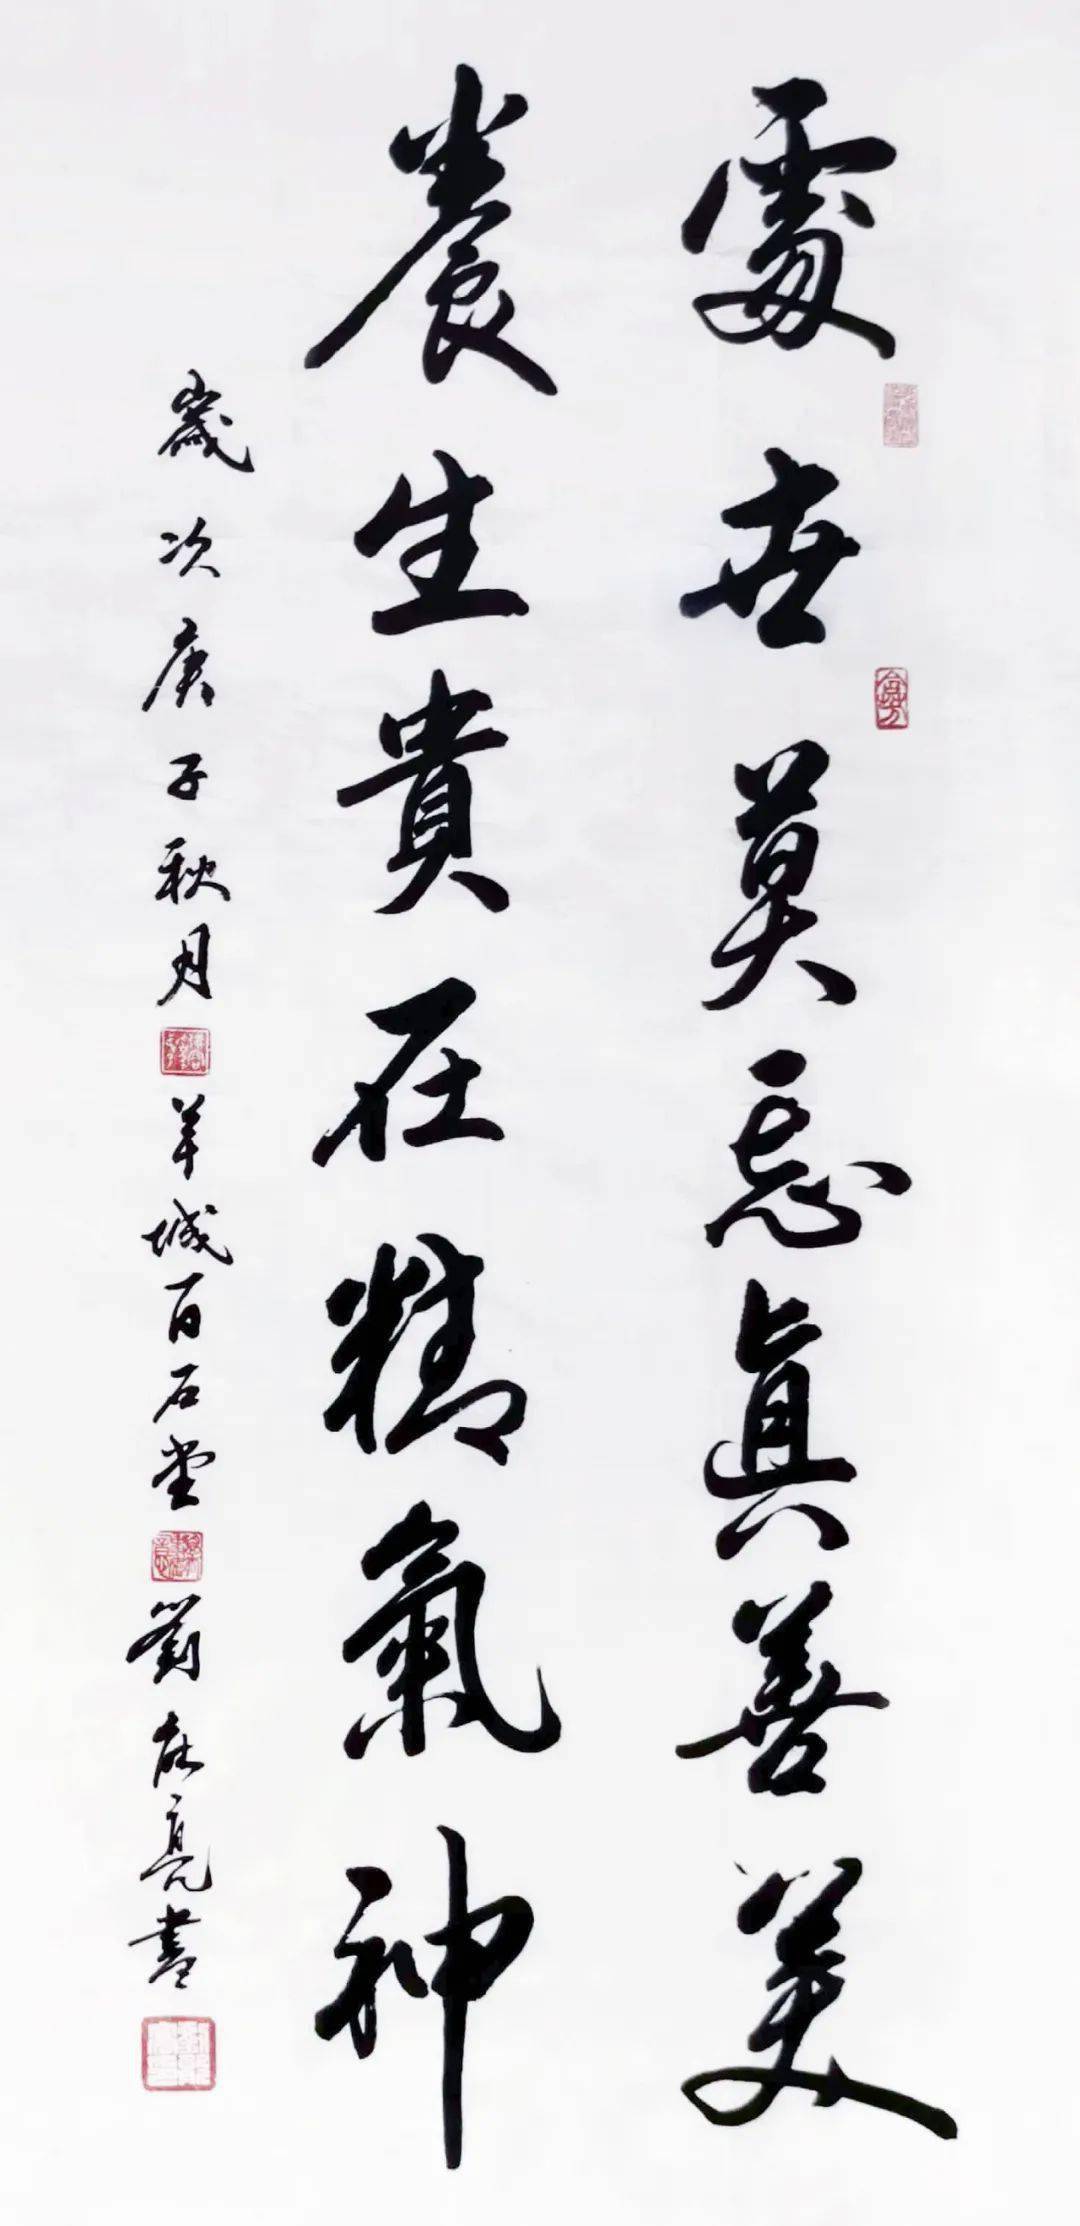 處世莫忘真善美
養生貴在精氣神
歲次庚子秋月羊城百石堂劉在亮書